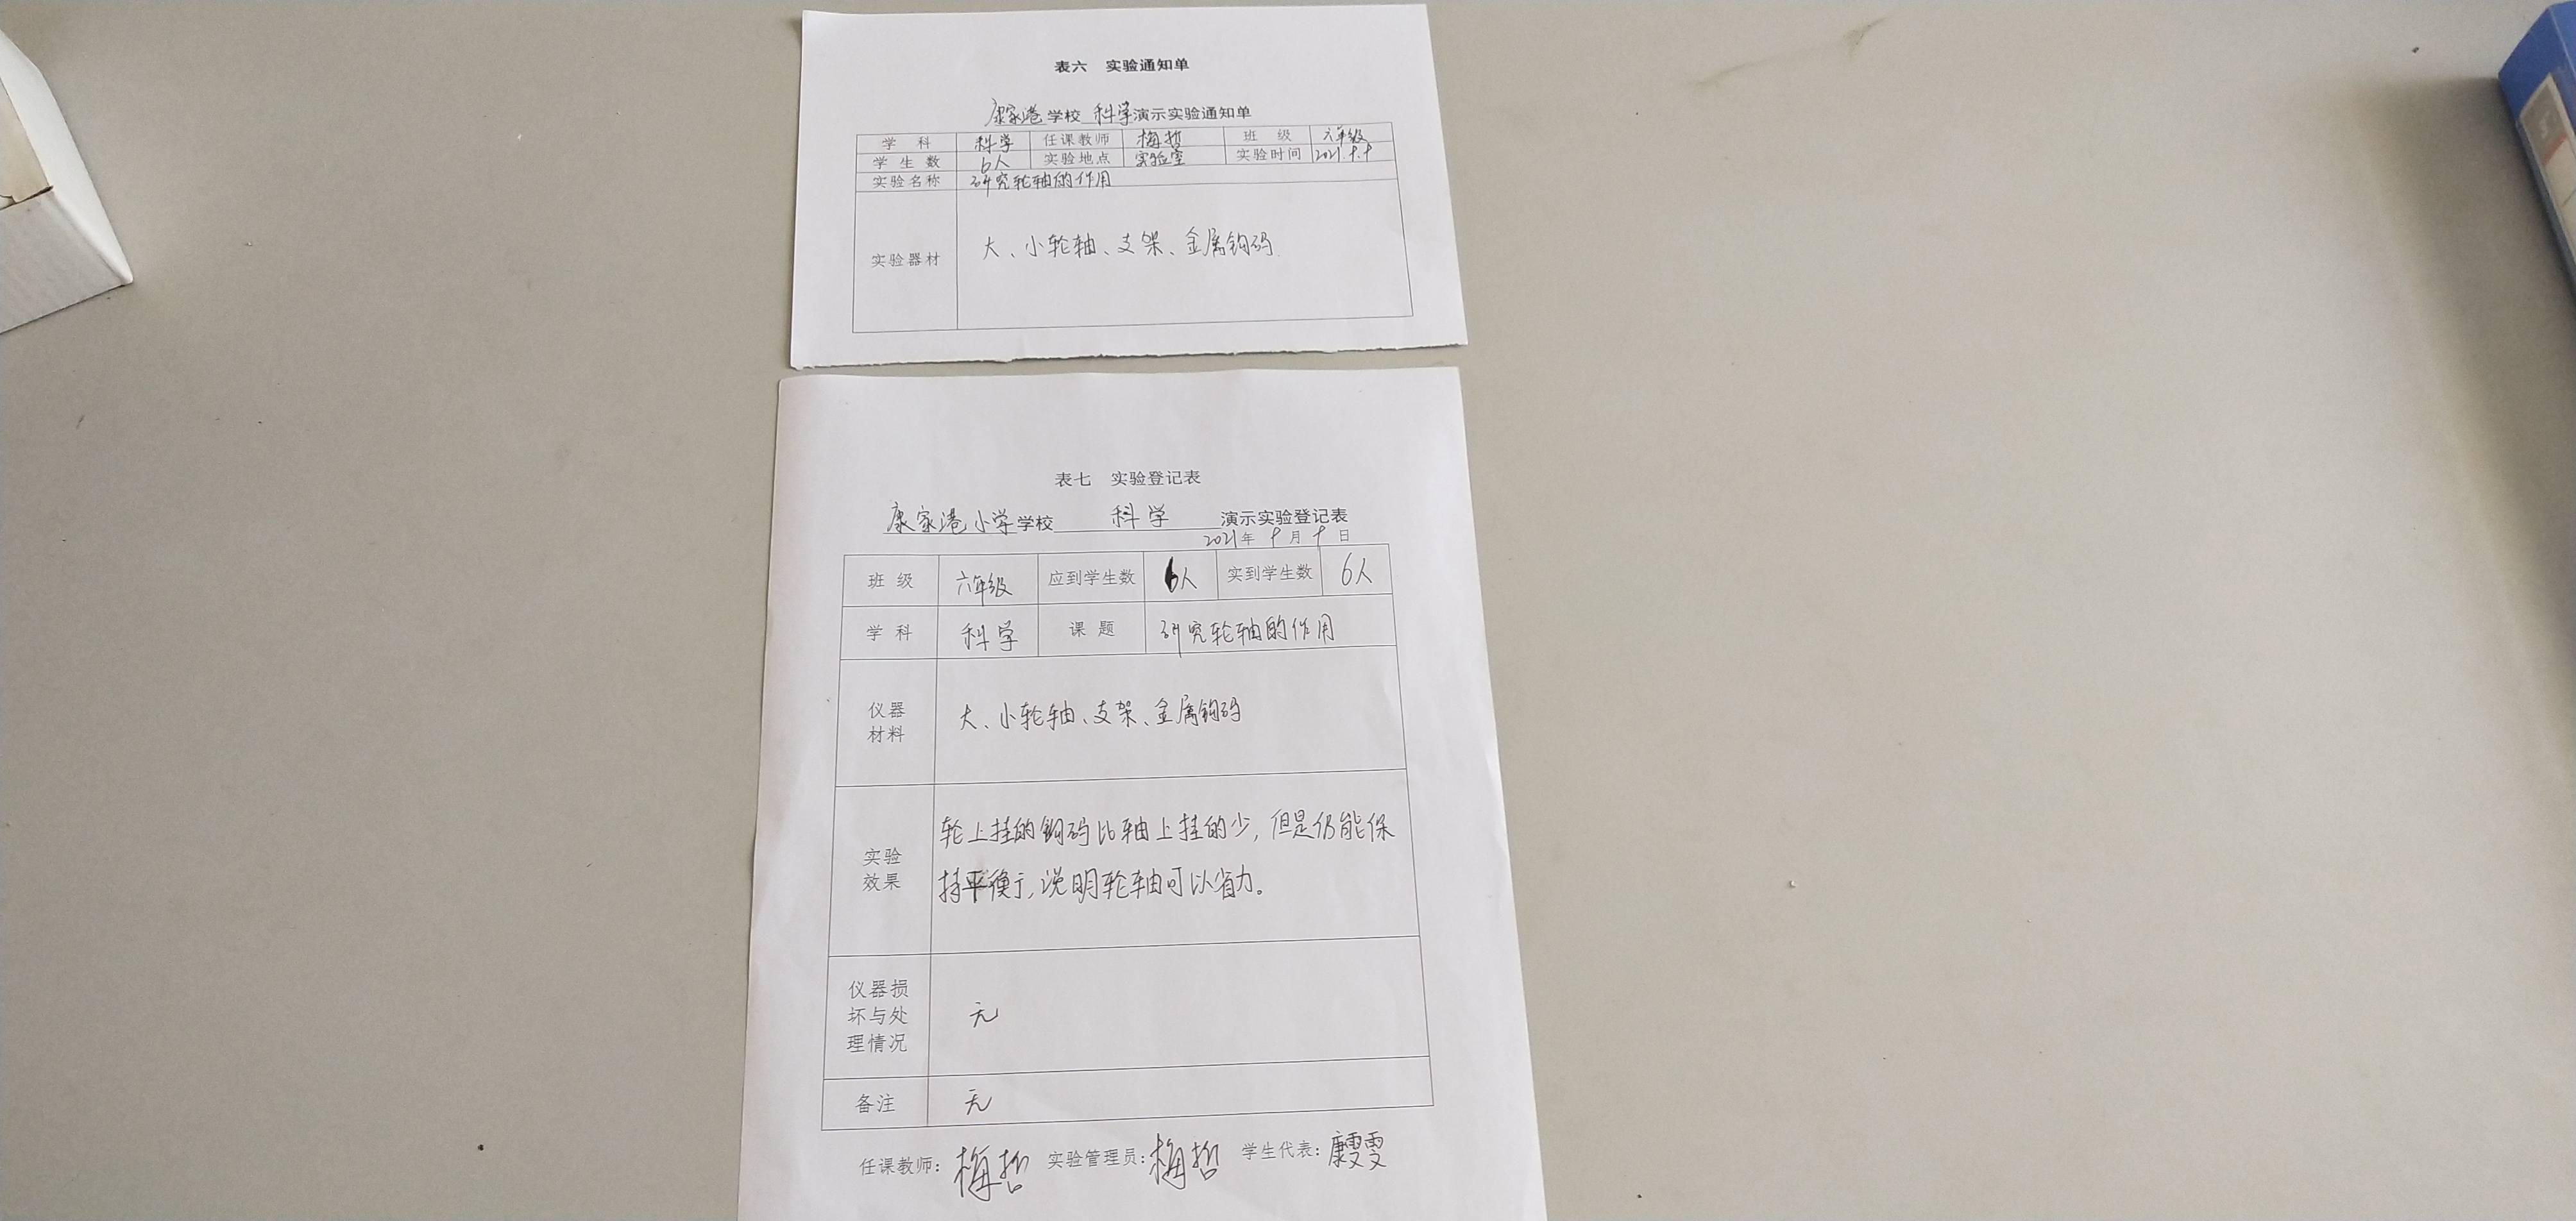 表六 实验通知单
康家港学校 科学演示实验通知单
学 科 科学 任课教师 梅哲 班 级 六年级
学 生 数 6人 实验地点 实验室 实验时间 2021.9.9
实验名称 研究轮轴的作用
实验器材 大、小轮轴、支架、金属钩码
表七 实验登记表
康家港小学学校 科学 演示实验登记表
2021年 9月 9日
班 级 六年级 应到学生数 6人 实到学生数 6人
学 科 科学 课 题 研究轮轴的作用
仪器
材料
大、小轮轴、支架、金属钩码
实验
效果
轮上挂的钩码比轴上挂的少,但是仍能保
持平衡,说明轮轴可以省力。
仪器损
坏与处
理情况
无
备注 无
任课教师:梅哲 实验管理员:梅哲 学生代表:康雯雯